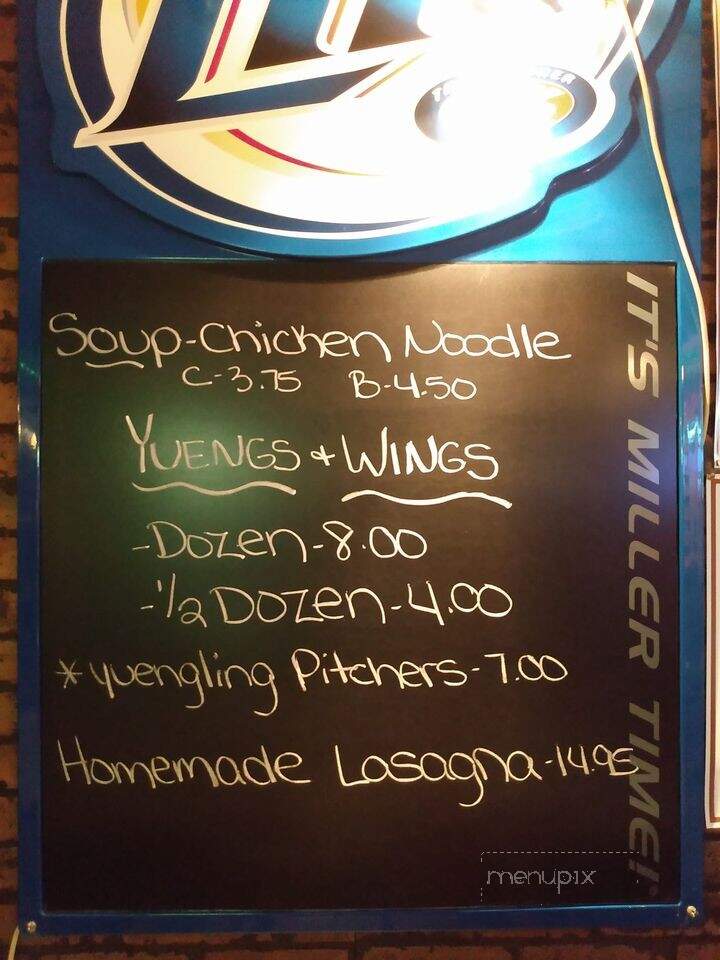 Soup-Chicken Noodle
C-3.75 B-4.50
YUENGS + WINGS
-Dozen-8.00
-1/2 Dozen-4.00
*yuengling Pitchers-7.00
Homemade Lasagna-14.95
IT'S MILLER TIME!
menupix